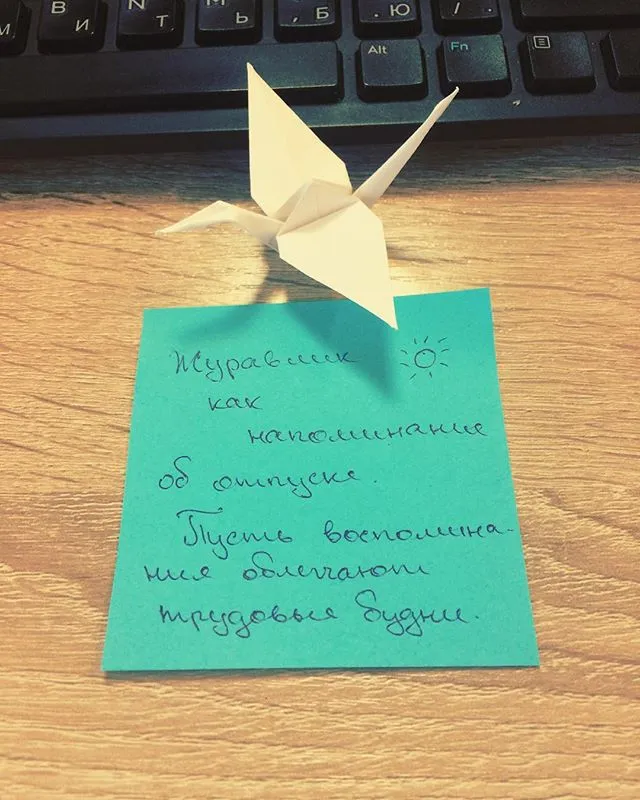 В N Ь , Б . Ю / .
И Т
Alt Fn
Журавлик
как
напоминание
об отпуске.
Пусть воспомина-
ния облегчают
трудовые будни.